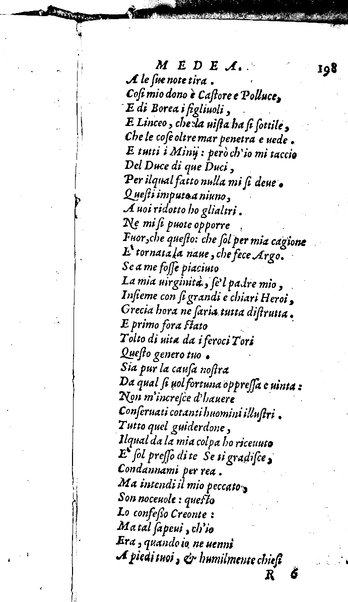 MEDEA. 198
A le sue note tira.
Cosi mio dono è Castore e Polluce,
E di Borea i figliuoli,
E Linceo, che la uista ha si sottile,
Che le cose oltre mar penetra e uede.
E tutti i Minij: però ch'io mi taccio
Del Duce di que Duci,
Per ilqual fatto nulla mi si deue.
Questi imputo a niuno,
A uoi ridotto ho gli altri.
Ne mi si puote opporre
Fuor, che questo: che sol per mia cagione
E' tornata la naue, che fece Argo.
Se a me fosse piaciuto
La mia uirginità, se'l padre mio,
Insieme con si grandi e chiari Heroi,
Grecia hora ne saria tutta distrutta.
E primo fora stato
Tolto di uita da i feroci Tori
Questo genero tuo.
Sia pur la causa nostra
Da qual si uol fortuna oppressa e uinta:
Non m'incresce d'hauere
Conseruati cotanti huomini illustri.
Tutto quel guiderdone,
Ilqual da la mia colpa ho riceuuto
E' sol presso di te Se ti gradisce,
Condannami per rea.
Ma intendi il mio peccato,
Son noceuole: questo
Lo confesso Creonte:
Ma tal sapeui, ch'io
Era, quando io ne uenni
A piedi tuoi, & humilmente chiesi
R 6